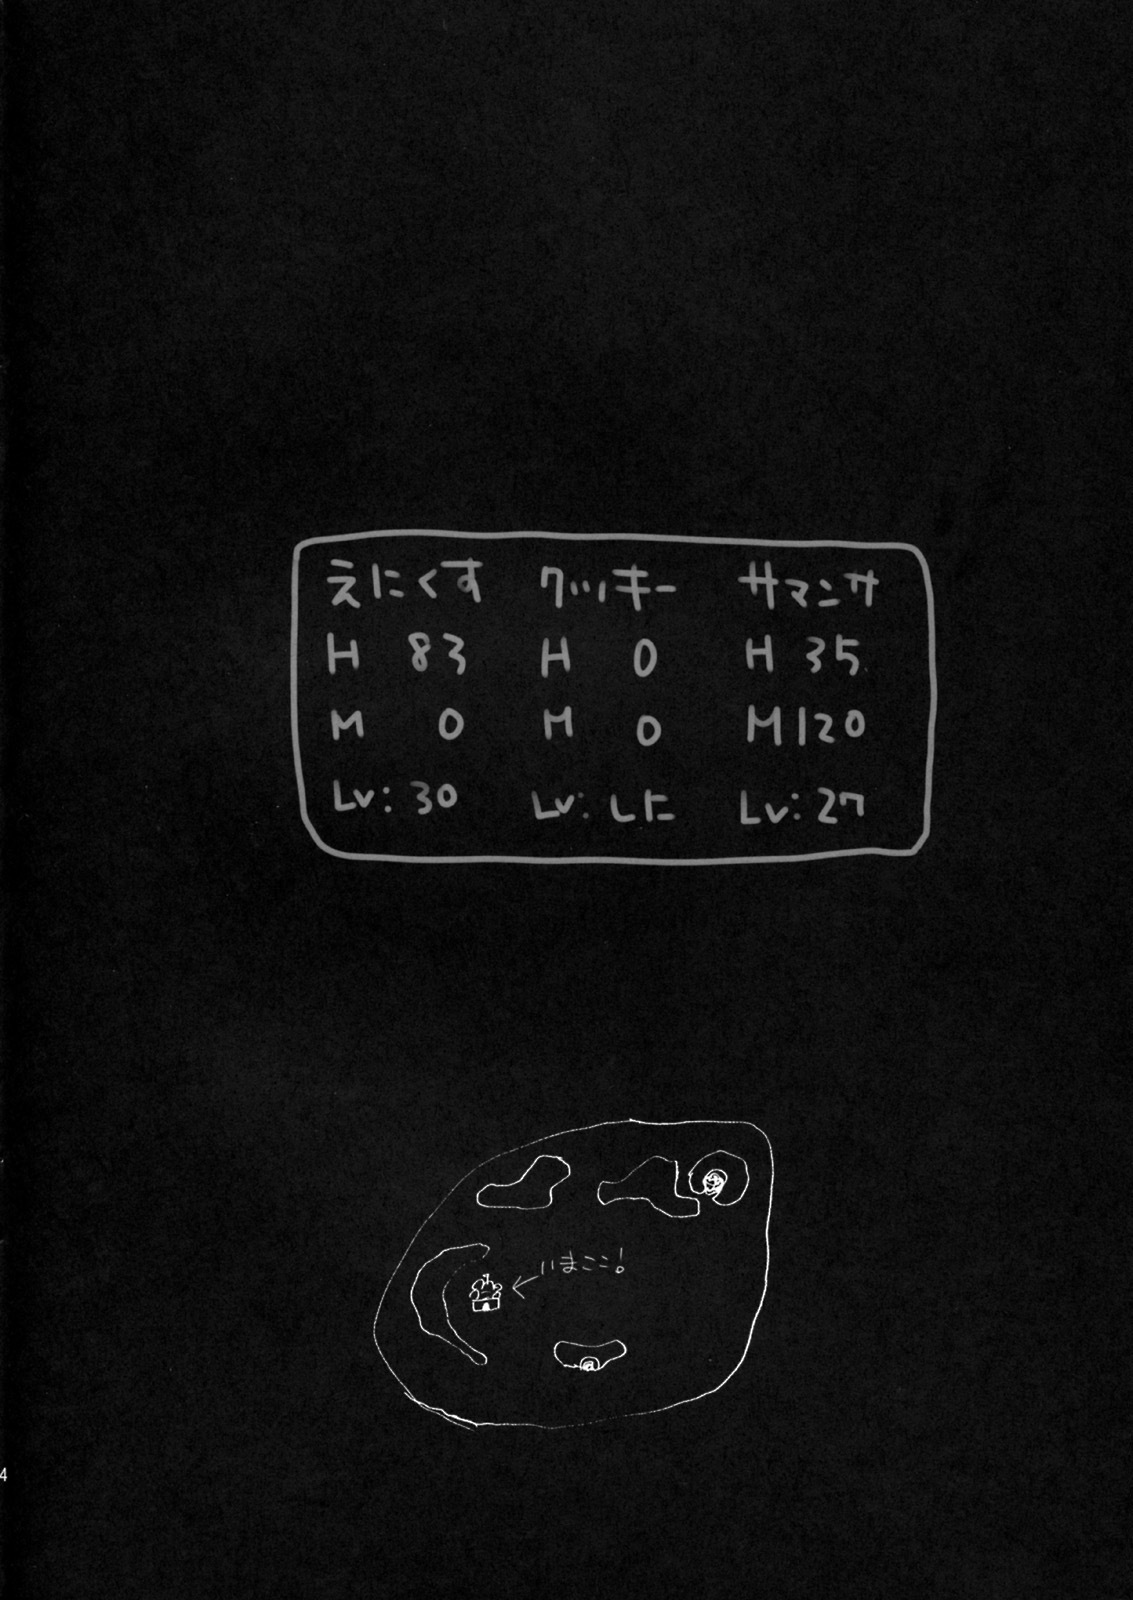 えにくす クッキー サマンサ
H 83 H 0 H 35
M 0 M 0 M 120
Lv: 30 Lv: しに Lv: 27
いまここ!
4